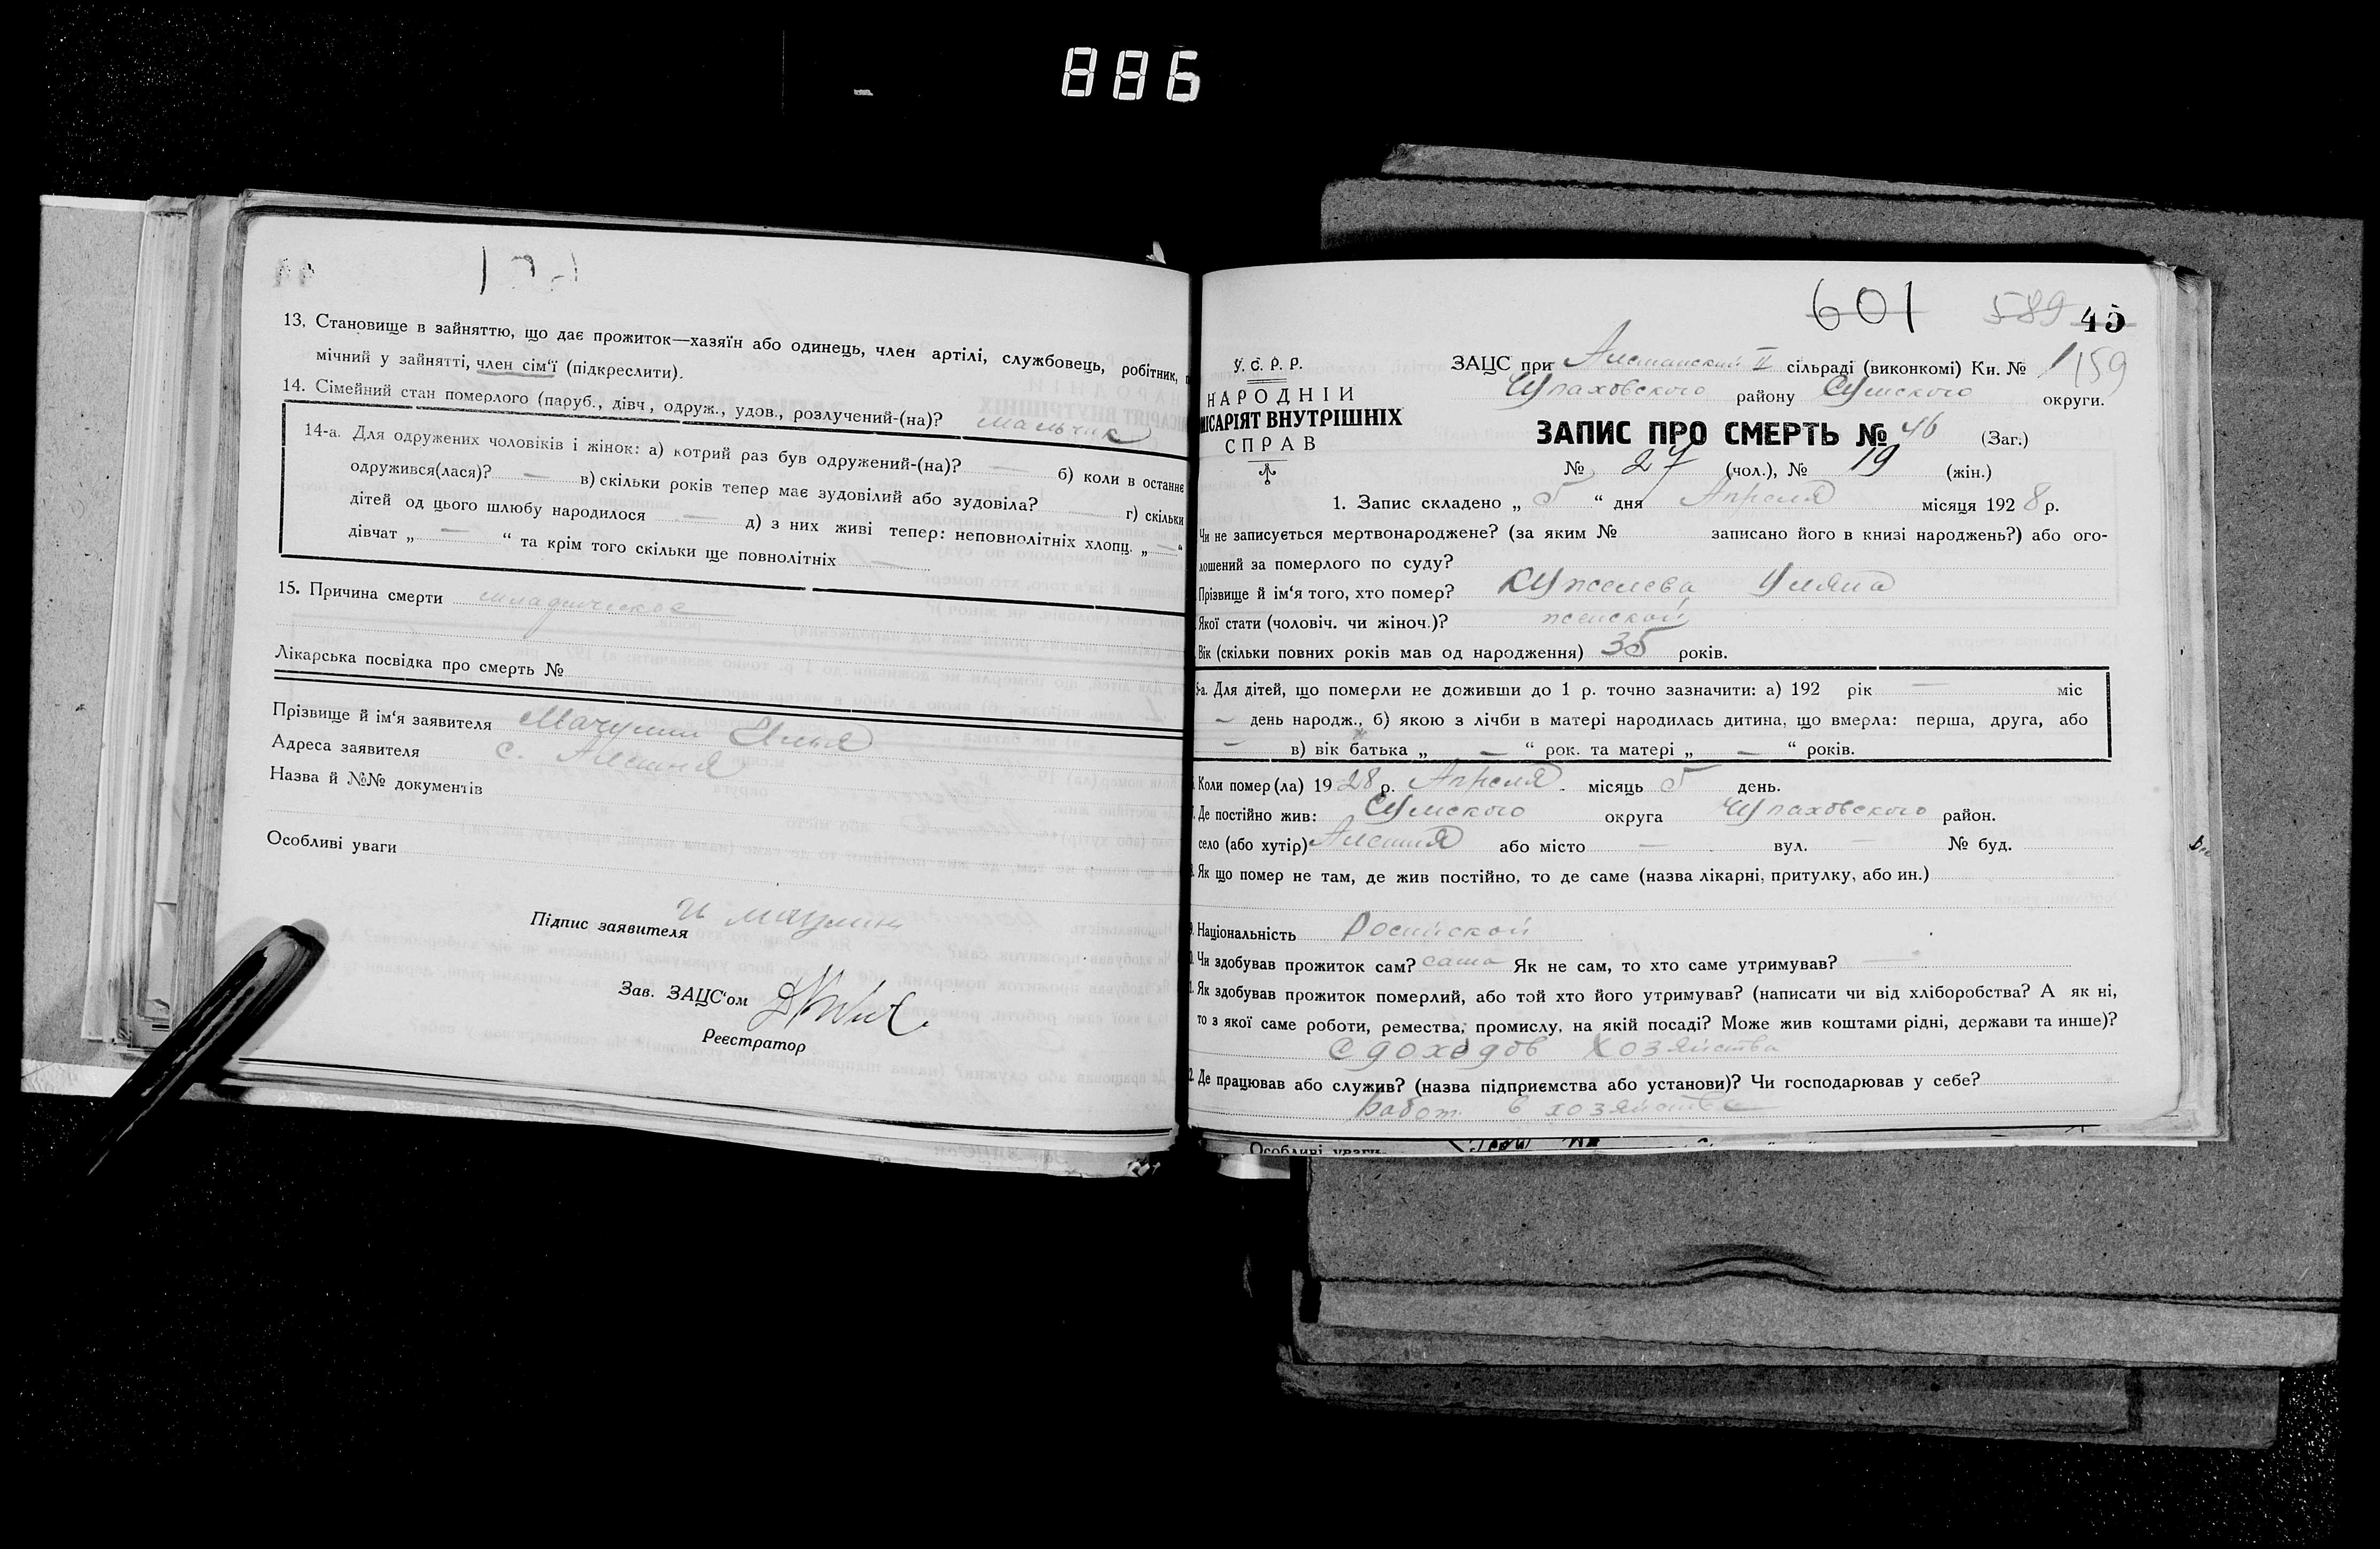 886
13. Становище в зайняттю, що дає прожиток—хазяїн або одинець, член артілі, службовець, робітник,
мічний у зайнятті, член сім'ї (підкреслити).
14. Сімейний стан померлого (паруб., дівч., одруж., удов., розлучений-(на)? мальчик
14-а. Для одружених чоловіків і жінок: а) котрий раз був одружений-(на)? — б) коли в останнє
одружився(лася)? — в) скільки років тепер має зудовілий або зудовіла? — г) скільки
дітей од цього шлюбу народилося — д) з них живі тепер: неповнолітніх хлопц. „ — “
дівчат „ — “ та крім того скільки ще повнолітніх —
15. Причина смерти младенческое
Лікарська посвідка про смерть №
Прізвище й ім'я заявителя Мачулин Илья
Адреса заявителя с. Алешня
Назва й №№ документів
Особливі уваги
Підпис заявителя И Мачулин
Зав. ЗАЦС'ом
Реєстратор
601 589 45
У. С. Р. Р.
НАРОДНІЙ
МІСАРІЯТ ВНУТРІШНІХ
СПРАВ
ЗАЦС при Алешанский II сільраді (виконкомі) Кн. № 1 159
Чупаховского району Сумского округи.
ЗАПИС ПРО СМЕРТЬ № 46 (Заг.)
№ 27 (чол.), № 19 (жін.)
1. Запис складено „ 5 “ дня Апреля місяця 1928 р.
Чи не записується мертвонароджене? (за яким № записано його в книзі народжень?) або ого-
лошений за померлого по суду?
Прізвище й ім'я того, хто помер? Ульяна
Якої стати (чоловіч. чи жіноч.)? женской
Вік (скільки повних років мав од народження) 35 років.
5-а. Для дітей, що померли не доживши до 1 р. точно зазначити: а) 192 рік — міс
— день народж., б) якою з лічби в матері народилась дитина, що вмерла: перша, друга, або
— в) вік батька „ — “ рок. та матері „ — “ років.
Коли помер(ла) 1928 р. Апреля місяць 5 день.
Де постійно жив: Сумского округа Чупаховского район.
село (або хутір) Алешня або місто — вул. — № буд.
Як що помер не там, де жив постійно, то де саме (назва лікарні, притулку, або ин.)
Національність Росийской
Чи здобував прожиток сам? сама Як не сам, то хто саме утримував? —
Як здобував прожиток померлий, або той хто його утримував? (написати чи від хліборобства? А як ні,
то з якої саме роботи, ремества, промислу, на якій посаді? Може жив коштами рідні, держави та инше)?
С доходов хозяйства
2. Де працював або служив? (назва підприємства або установи)? Чи господарював у себе?
Работ. в хозяйстве
Особливі уваги